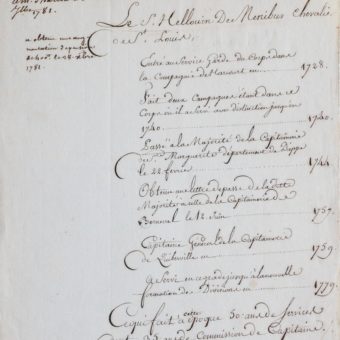 Xbre 1781.
a obtenu une aug
mentation de pension
de 400 le 28 Xbre
1781.
Le Sr. Hellouin De Menibus Chevalier
de St. Louis,
Entré au Service Garde du Corps dans
la Compagnie d'harcourt en 1728.
Fait deux Campagnes étant dans ce
Corps où il a Servi avec distinction jusqu'en
1740 1740.
Passé à la Majorité de la Capitainerie
de Ste. Marguerite département de Dieppe
le 22 février 1744
Obtenu une lettre de passe de la dite
Majorité à celle de la Capitainerie de
le 12 Juin 1757.
Capitaine Général de la Capitainerie
de en 1759
a Servi en ce grade jusqu'à la nouvelle
formation de Divisions en 1779.
Ce qui fait à cette époque 50 ans de services
de Commission de Capitaine